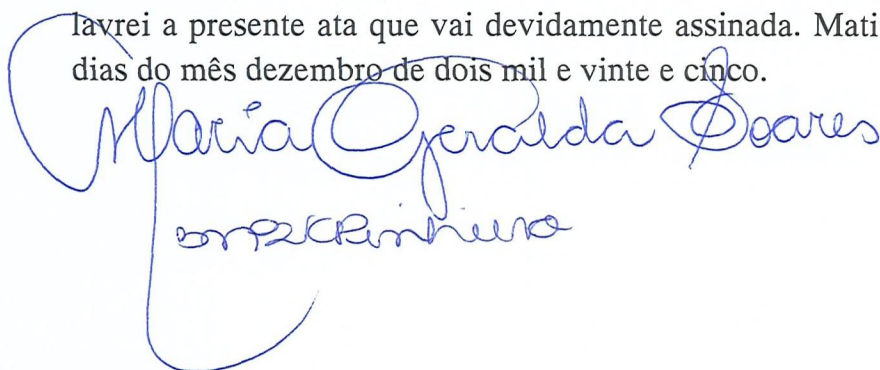 lavrei a presente ata que vai devidamente assinada. Mati
dias do mês dezembro de dois mil e vinte e cinco.
Maria Geralda Soares
Pinheiro